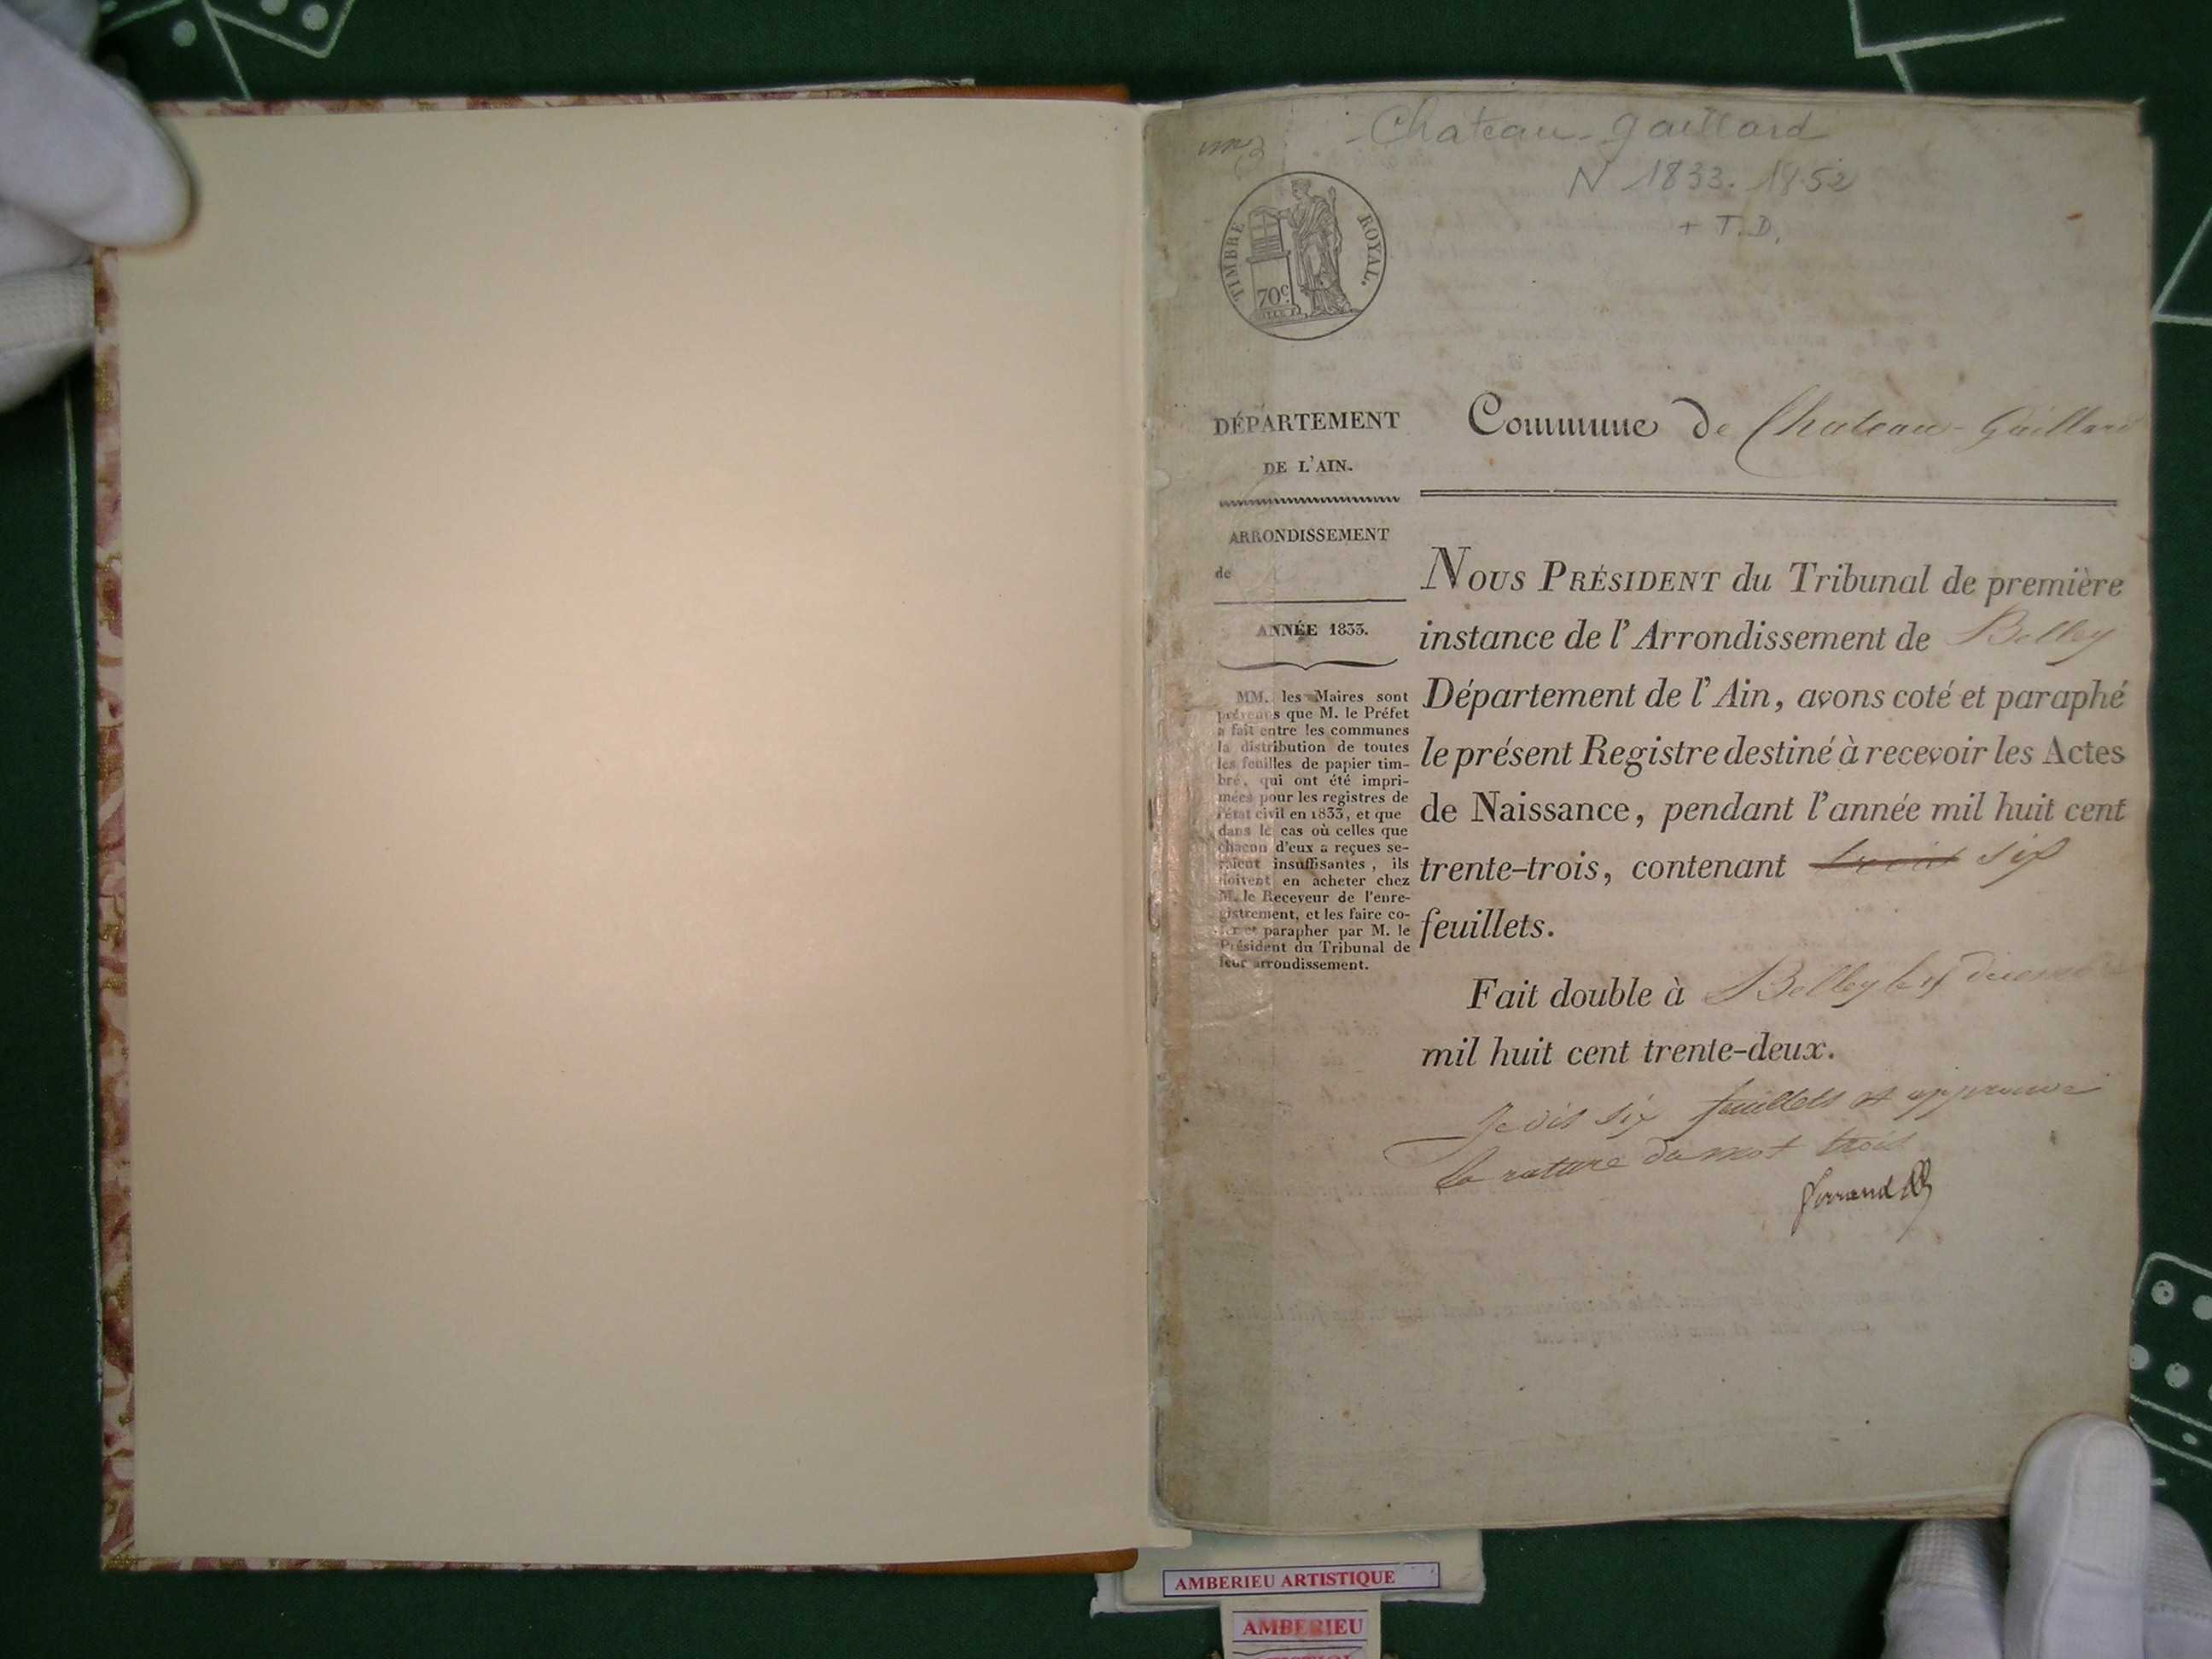 Chateau-gaillard
N 1833. 1852
+ T.D.
TIMBRE ROYAL.
70c.
DÉPARTEMENT
DE L'AIN.
ARRONDISSEMENT
de
ANNÉE 1833.
MM. les Maires sont
prévenus que M. le Préfet
a fait entre les communes
la distribution de toutes
les feuilles de papier tim-
bré, qui ont été impri-
mées pour les registres de
l'état civil en 1833, et que
dans le cas où celles que
chacun d'eux a reçues se-
raient insuffisantes, ils
doivent en acheter chez
M. le Receveur de l'enre-
gistrement, et les faire co-
ter et parapher par M. le
Président du Tribunal de
leur arrondissement.
Commune de Chateau-Gaillard
NOUS PRÉSIDENT du Tribunal de première
instance de l'Arrondissement de Belley
Département de l'Ain, avons coté et paraphé
le présent Registre destiné à recevoir les Actes
de Naissance, pendant l'année mil huit cent
trente-trois, contenant trois six
feuillets.
Fait double à Belley le decembre
mil huit cent trente-deux.
Je dis six feuillets et approuve
la rature du mot trois
AMBERIEU ARTISTIQUE
AMBERIEU